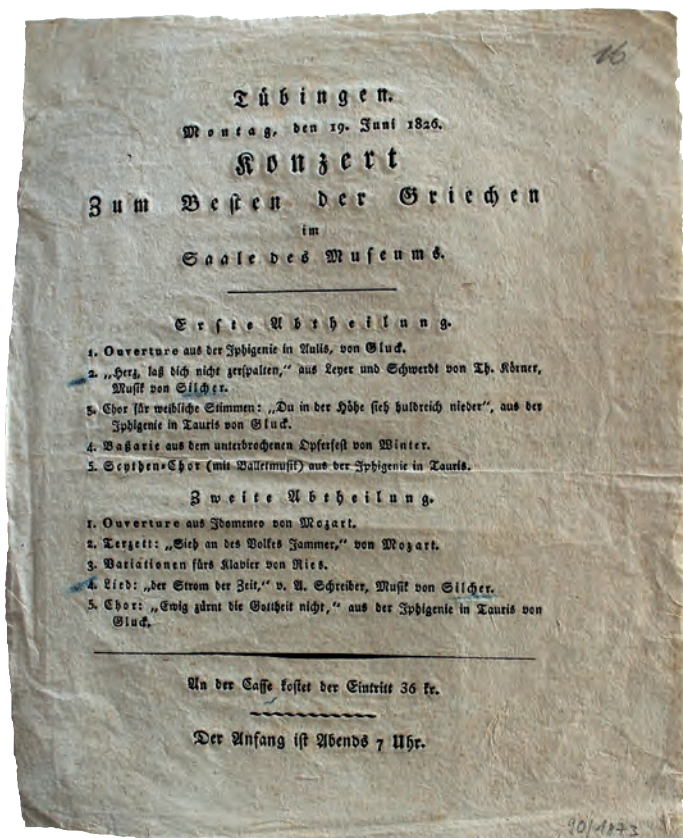 16
Tübingen.
Montag, den 19. Juni 1826.
Konzert
Zum Besten der Griechen
im
Saale des Museums.
Erste Abtheilung.
1. Ouverture aus der Iphigenie in Aulis, von Gluck.
2. „Herz, laß dich nicht zerspalten,“ aus Leyer und Schwerdt von Th. Körner,
Musik von Silcher.
3. Chor für weibliche Stimmen: „Du in der Höhe sieh huldreich nieder“, aus der
Iphigenie in Tauris von Gluck.
4. Baßarie aus dem unterbrochenen Opferfest von Winter.
5. Scythen-Chor (mit Balletmusik) aus der Iphigenie in Tauris.
Zweite Abtheilung.
1. Ouverture aus Idomeneo von Mozart.
2. Terzett: „Sieh an des Volkes Jammer,“ von Mozart.
3. Variationen fürs Klavier von Ries.
4. Lied: „der Strom der Zeit,“ v. A. Schreiber, Musik von Silcher.
5. Chor: „Ewig zürnt die Gottheit nicht,“ aus der Iphigenie in Tauris von
Gluck.
An der Casse kostet der Eintritt 36 kr.
Der Anfang ist Abends 7 Uhr.
90/1873